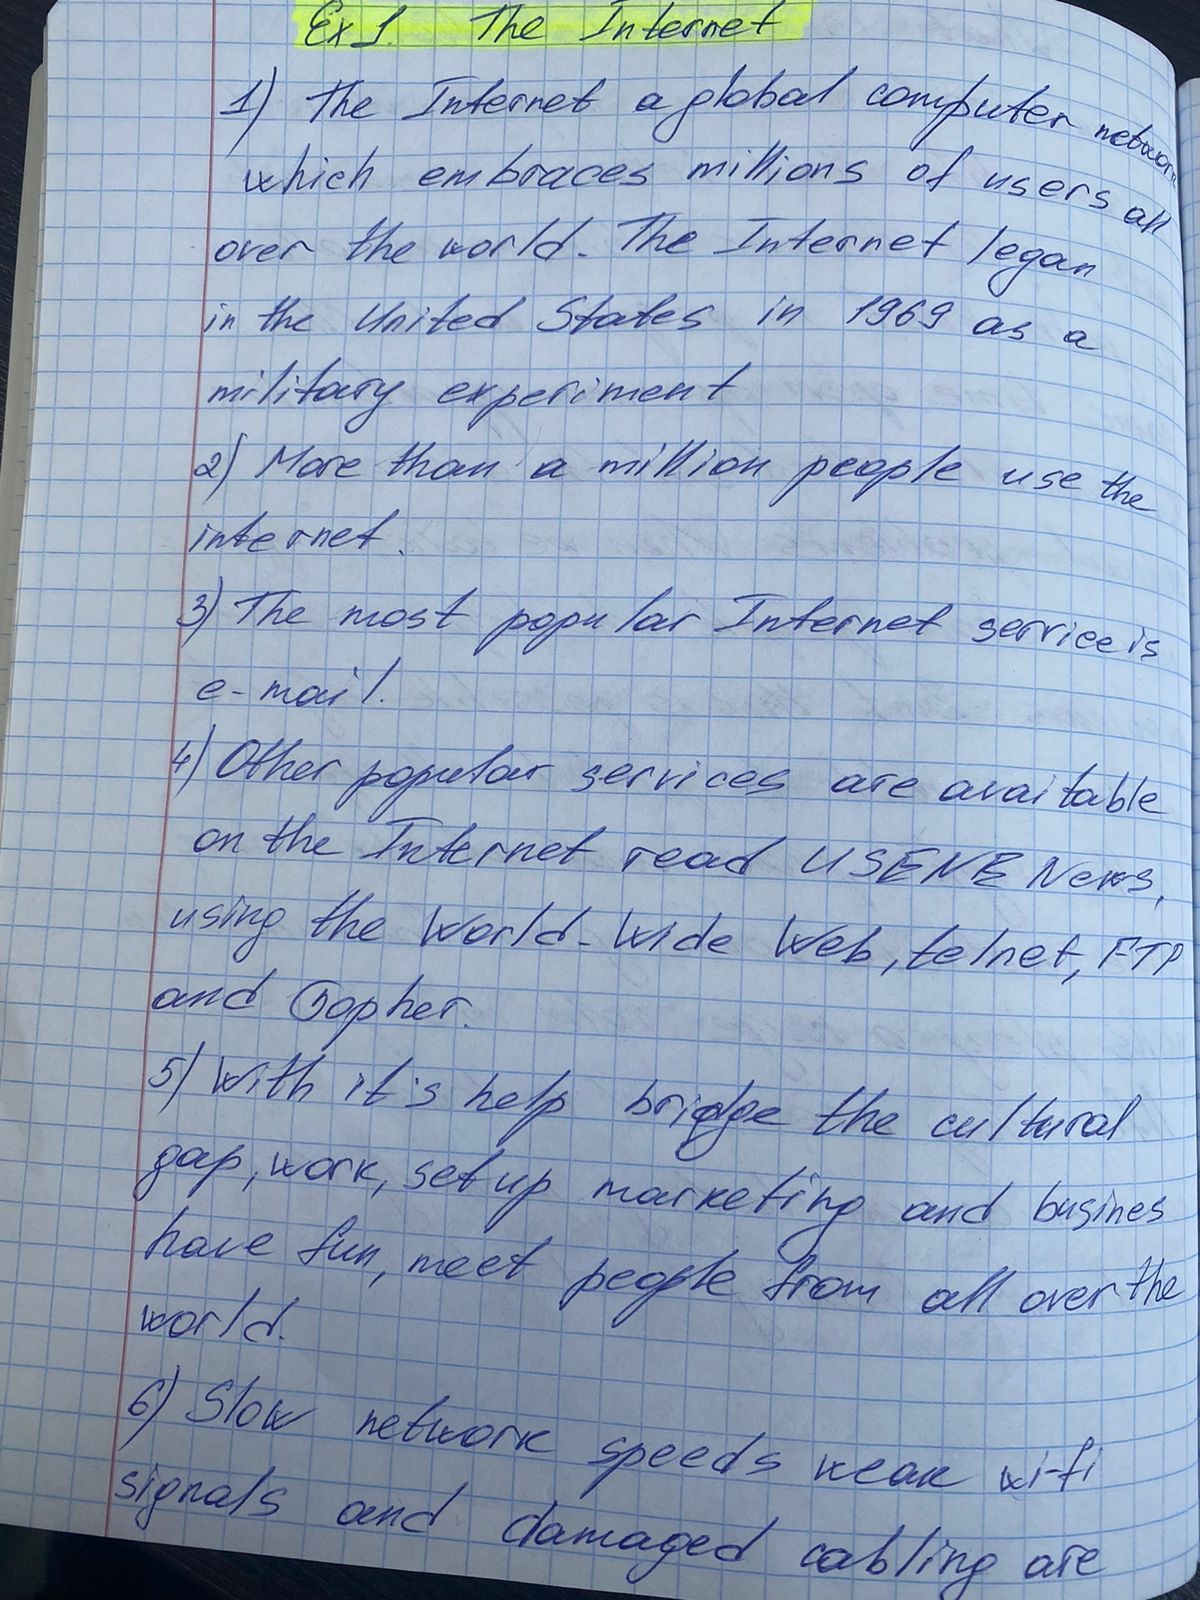 Ex 1. The Internet
1) The Internet a global computer network
which embraces millions of users all
over the world. The Internet legan
in the United States in 1969 as a
military experiment
2) More than a million people use the
internet.
3) The most popular Internet service is
e-mail.
4) Other popular services are available
on the Internet read USENE News,
using the World-Wide Web, telnet, FTP
and Gopher.
5) With it's help bridge the cultural
gap, work, set up marketing and busines
have fun, meet people from all over the
world.
6) Slow network speeds weak wi-fi
signals and damaged cabling are